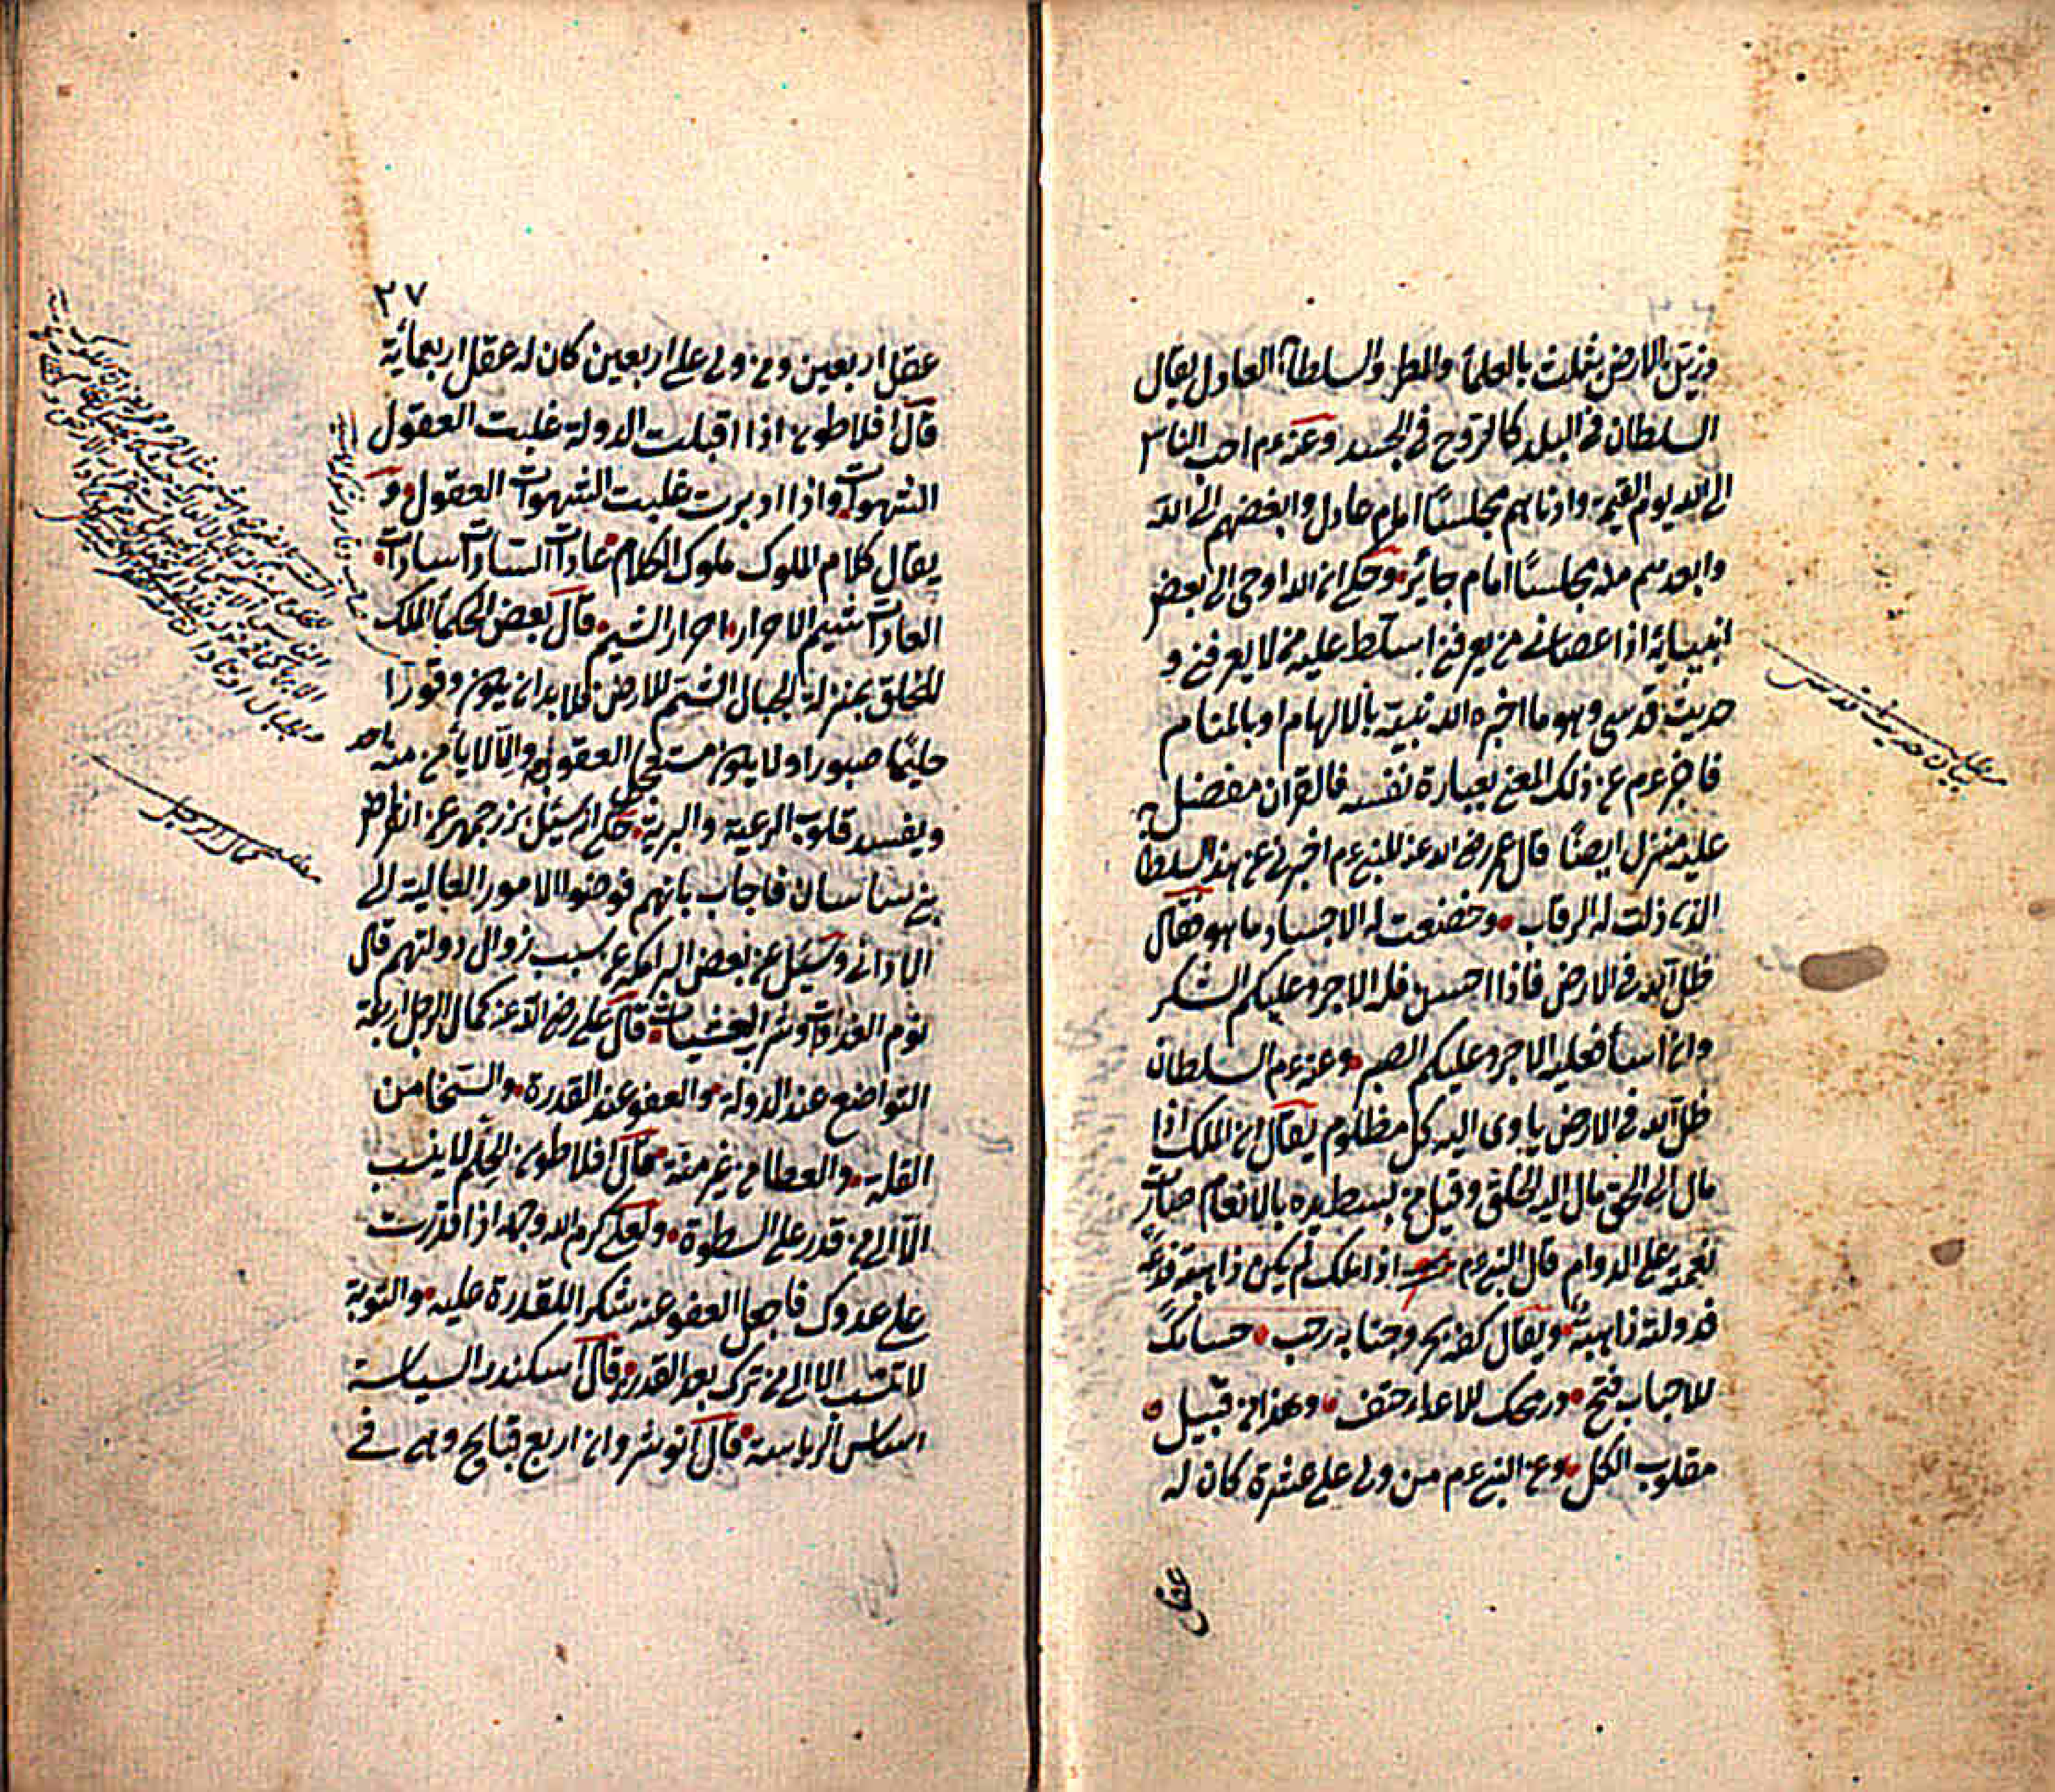 وزين الارض بثلث بالعلماء والمطر والسلطان العادل يقال
السلطان في البلد كالروح في الجسد وعنه عم احب الناس
الى الله يوم القيمة وادناهم مجلسًا امام عادل وابغضهم الى الله
وابعدهم منه مجلسًا امام جائر وحكى ان الله اوحى الى بعض
انبيائه اذا عصاني من يعرفني اسلط عليه من لا يعرفني و
حديث قدسي وهو ما اخبره الله نبيه بالالهام او بالمنام
فاخبر عم عن ذلك المعنى بعبارة نفسه فالقران مفضل
عليه منزل ايضًا قال عمر رضي الله عنه للنبي عم اخبرني عن هذا السلطان
الذي ذلت له الرقاب وخضعت له الاجساد ما هو فقال
ظل الله في الارض فاذا احسن فله الاجر وعليكم الشكر
وان اساء فعليه الاجر وعليكم الصبر وعنه عم السلطان
ظل الله في الارض ياوى اليه كل مظلوم يقال ان الملك اذا
مال الى الحق مال اليه الخلق وقيل من بسط يده بالانعام صان
نعمته على الدوام قال النبي عم اذا ملك لم يكن ذا هبة فدعه
فدولته ذاهبة ويقال كفه بحر وجنابه رحب حسامك
للاحباب فتح ورمحك للاعداء حتف وهذا من قبيل
مقلوب الكل وعن النبي عم من ولى على عشرة كان له
عقل
بيان حديث قدسي
٢٧
عقل اربعين ومن ولى على اربعين كان له عقل اربعمائة
قال افلاطون اذا اقبلت الدولة غلبت العقول
الشهوات واذا ادبرت غلبت الشهوات العقول و
يقال كلام الملوك ملوك الكلام عادات السادات سادات
العادات شيم الاحرار احرار الشيم قال بعض الحكماء الملك
للخلق بمنزلة الجبال الشم للارض فلا بد ان يكون وقورا
حليمًا صبورا ولا يكون مستعجل العقوبة والا لا يأمن منه احد
ويفسد قلوب الرعية والبرية حكى انه سئل بزرجمهر عن انقراض
بني ساسان فاجاب بانهم فوضوا الامور العالية الى
الاداني وسئل عن بعض البرامكه عن سبب زوال دولتهم قال
نوم الغدوات وشرب العشيات قال على رضي الله عنه كمال الرجل اربعة
التواضع عند الدولة والعفو عند القدرة والسخا من
القلة والعطا من غير منة قال افلاطون الحلم لا ينسب
الا الى من قدر على السطوة ولعلي كرم الله وجهه اذا قدرت
على عدوك فاجعل العفو عنه شكرا للقدرة عليه والتوبة
لا تنسب الا الى من ترك بعد القدرة قال اسكندر السياسة
اساس الرياسة قال انوشروان اربع قبايح وهي في
مطلب كمال الرجل